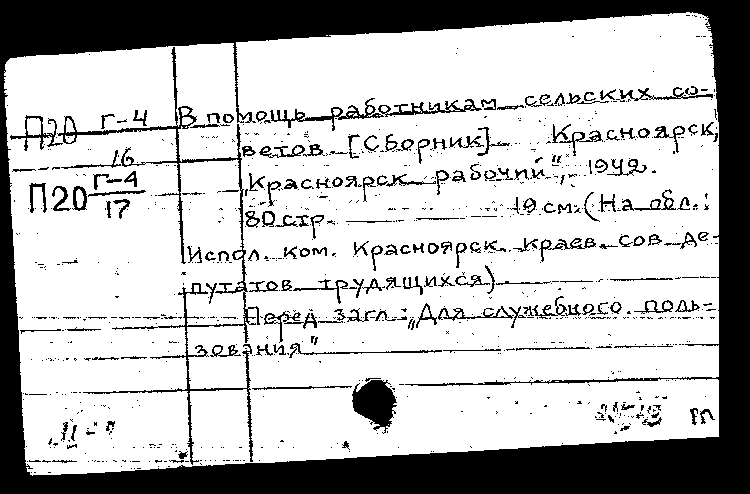 П20 Г-4 В помощь работникам сельских со-
16 ветов. [Сборник]. Красноярск,
П20 Г-4 „Красноярск. рабочий“, 1942.
17 80 стр. 19 см. (На обл.:
Испол. ком. Красноярск. краев. сов. де-
путатов трудящихся).
Перед загл.: „Для служебного поль-
зования“
т